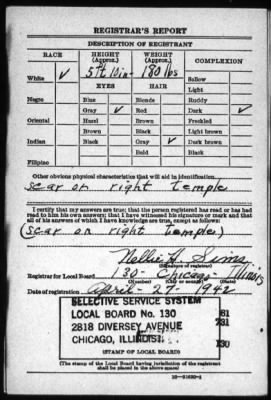 REGISTRAR'S REPORT
DESCRIPTION OF REGISTRANT
RACE HEIGHT (Approx.) WEIGHT (Approx.) COMPLEXION
White ✓ 5 ft 10 in- 180 lbs Sallow
Light
EYES HAIR
Negro Blue Blonde Ruddy
Gray ✓ Red Dark ✓
Oriental Hazel Brown Freckled
Brown Black Light brown
Indian Black Gray ✓ Dark brown
Bald Black
Filipino
Other obvious physical characteristics that will aid in identification
scar on right temple
I certify that my answers are true; that the person registered has read or has had
read to him his own answers; that I have witnessed his signature or mark and that
all of his answers of which I have knowledge are true, except as follows:
(scar on right temple)
Nellie H. Sims
(Signature of registrar)
Registrar for Local Board 130- Chicago- Illinois
(Number) (City or county) (State)
Date of registration April-27-1942
SELECTIVE SERVICE SYSTEM
LOCAL BOARD No. 130
2818 DIVERSEY AVENUE
CHICAGO, ILLINOIS
61
731
130
(STAMP OF LOCAL BOARD)
(The stamp of the Local Board having jurisdiction of the registrant
shall be placed in the above space)